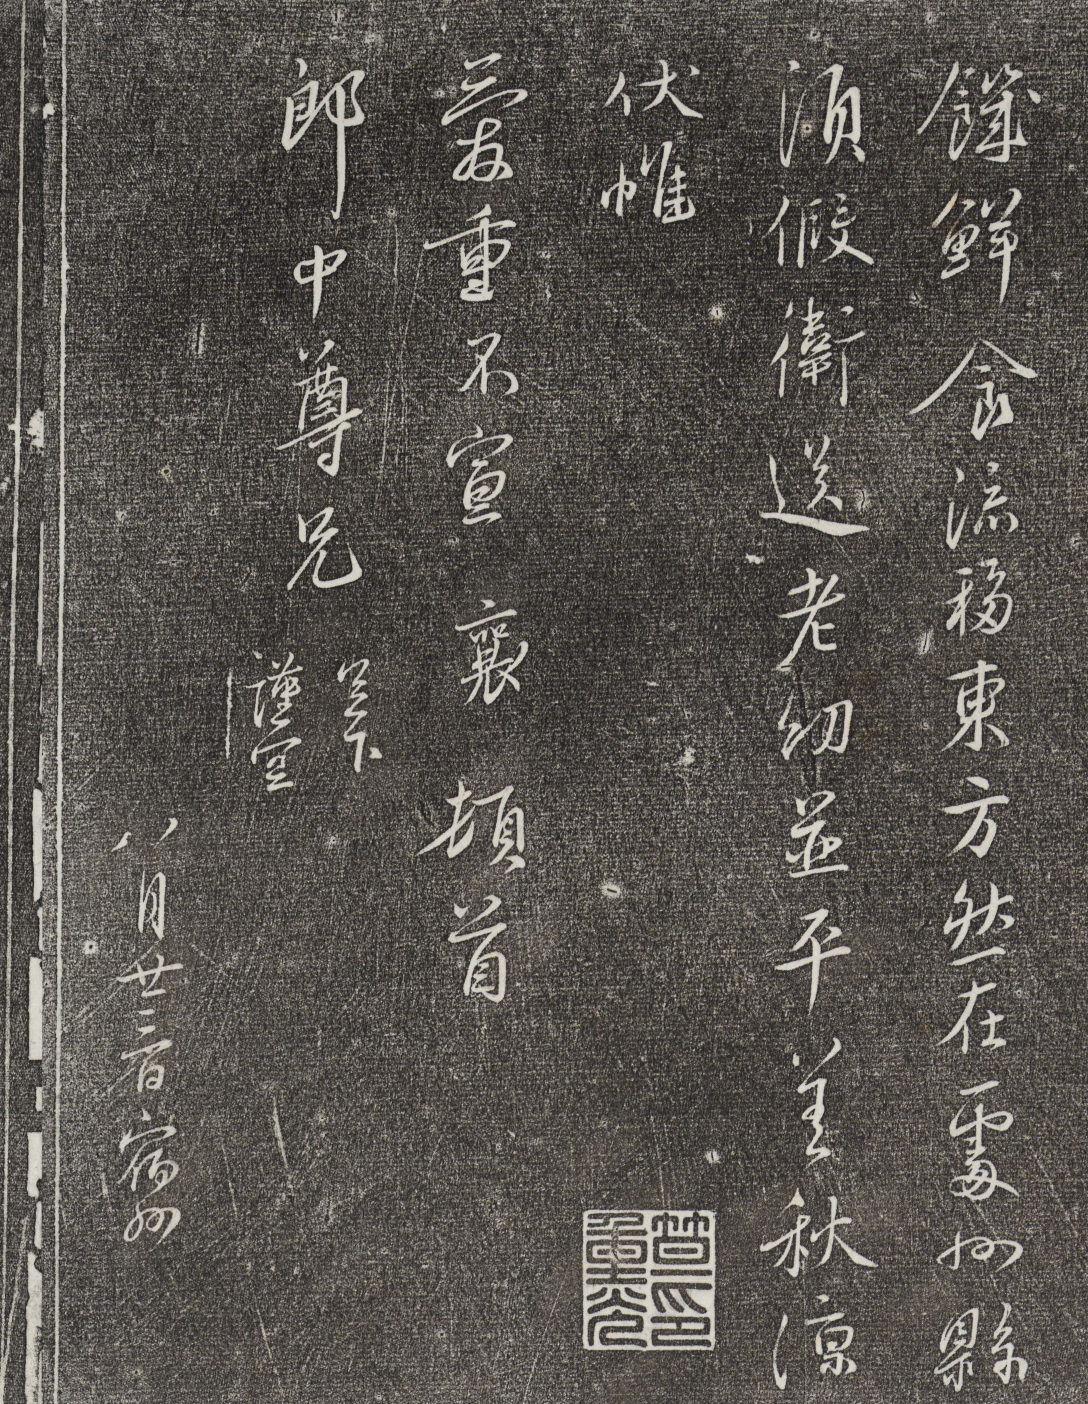 饑鮮食流移東方然在處州縣
須假衛送老幼並平善秋涼
伏惟
愛重不宣 襄 頓首
郎中尊兄 足下
謹空
八月廿二日宿州